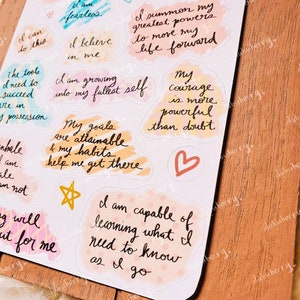 I am
fearless
I summon my
greatest powers
to move my
life forward
I can
do this
I believe
in me
The tools
I need to
succeed
are in
my possession
I am growing
into my fullest self
My
courage
is more
powerful
than doubt
My goals
are attainable
& my habits
help me get there
I am
am not
I am capable of
learning what I
need to know
as I go
will
out for me